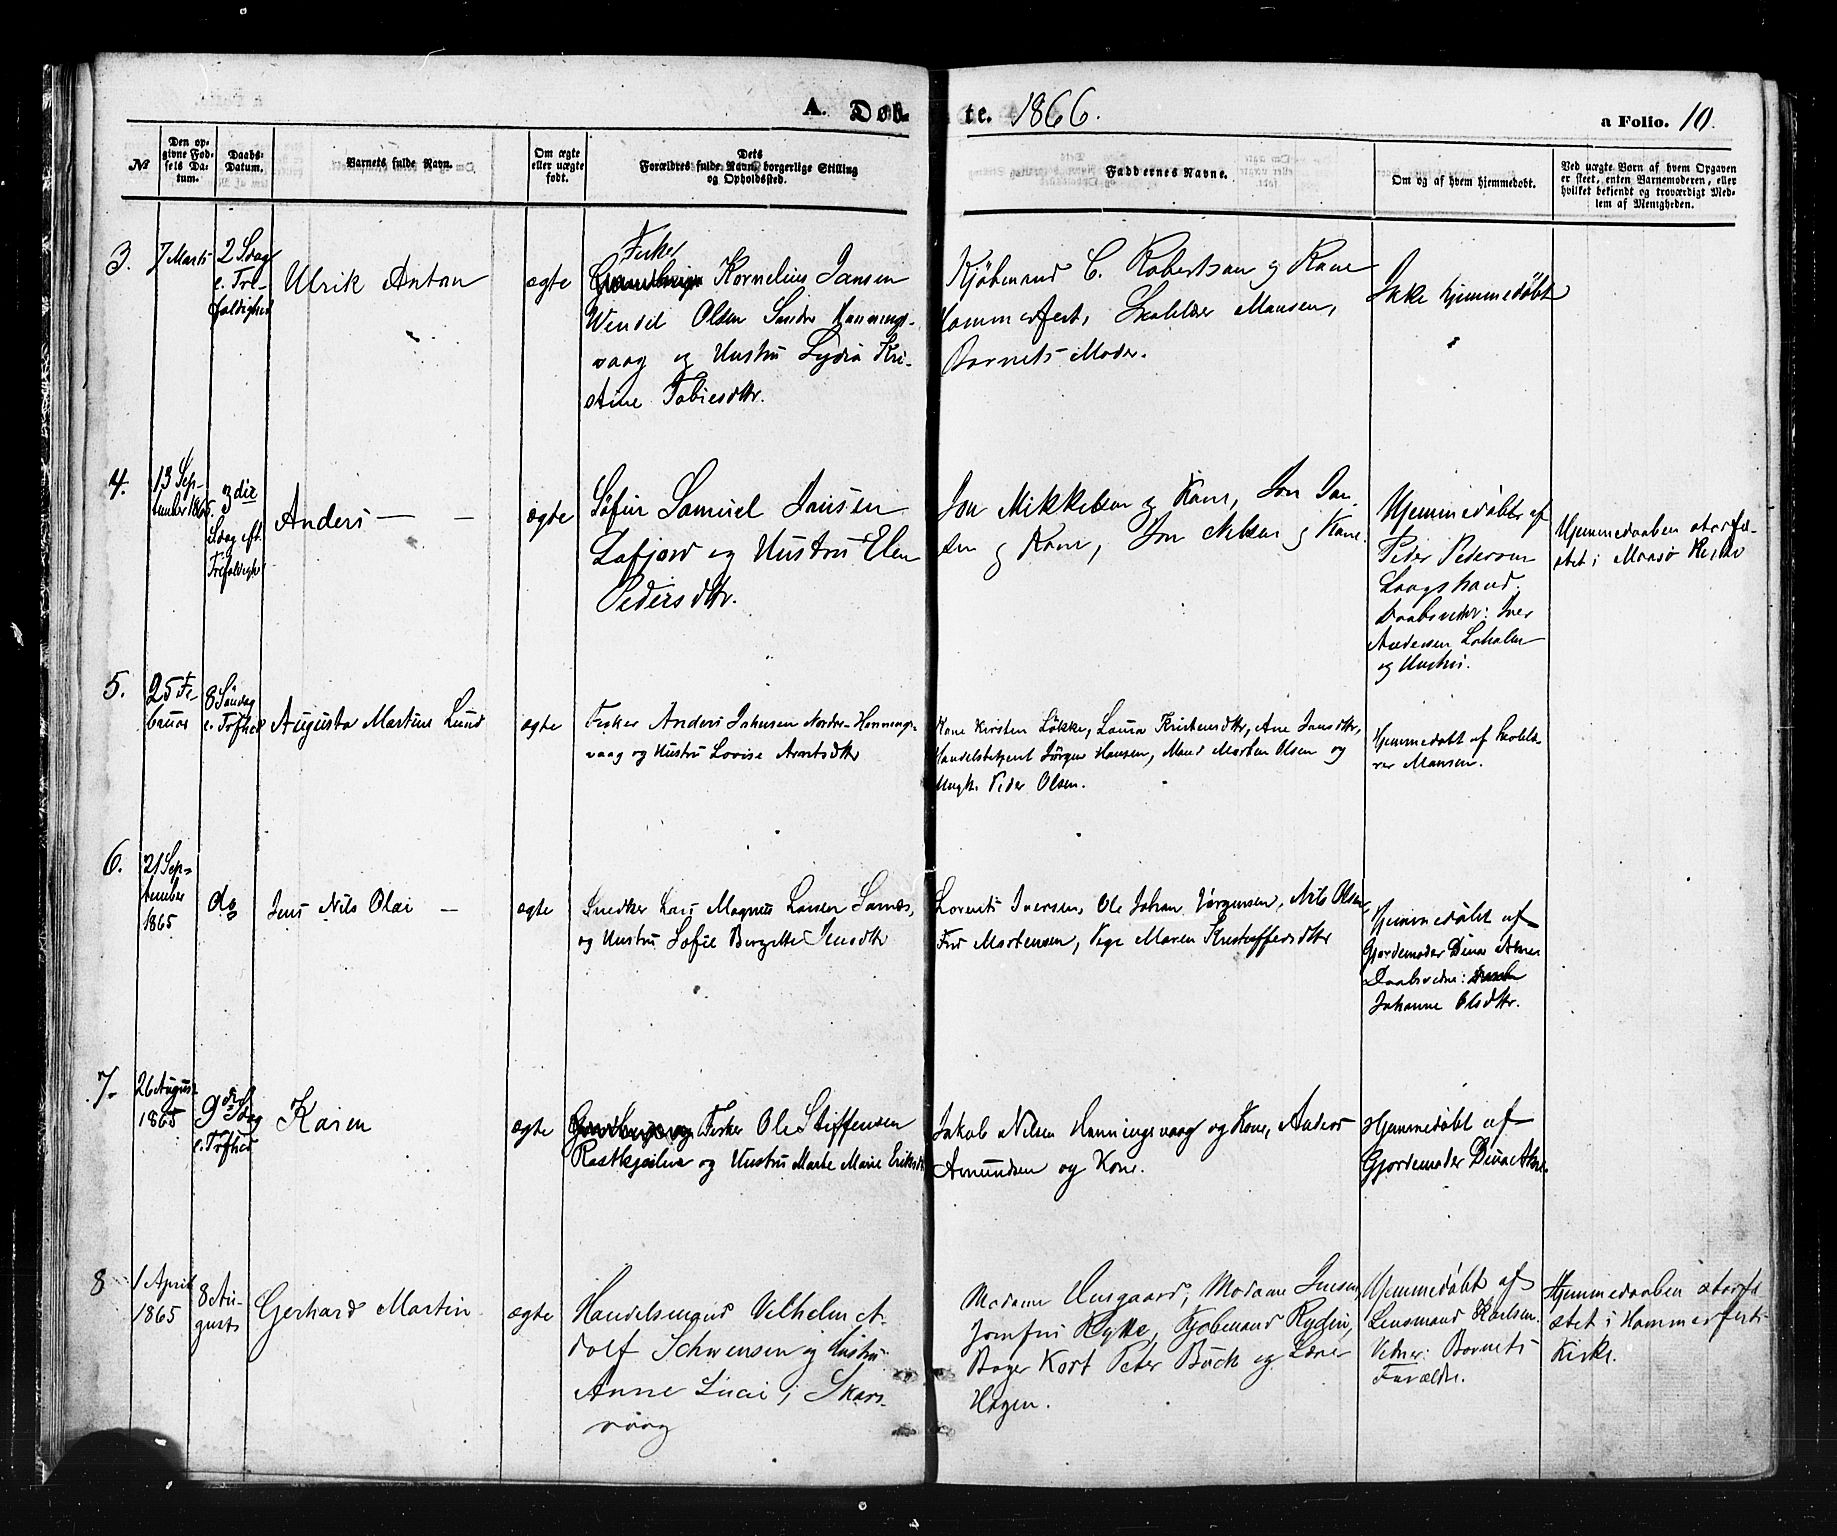 A. Døb-
te. 1866.
a Folio. 10.
№
Den op-
givne Fød-
sels Da-
tum.
Daabs-
Datum.
Barnets fulde Navn.
Om ægte
eller uægte
født.
Dets
Forældres fulde Navn, borgerlige Stilling
og Opholdssted.
Faddernes Navne.
Om og af hvem hjemmedøbt.
Ved uægte Børn af hvem Opgaven
er skeet, enten Barnemoderen, eller
hvilket bekjendt og troværdigt Med-
lem af Menigheden.
3.
7 Marts
2 Sdag
e. Tre-
foldighed
Ulrik Anton
ægte
Fisker
Kornelius Jansen
Wendel Olsen Søndre Honnings-
vaag og Hustru Lydia Kri-
stine Tobiesdtr.
Kjøbmand C. Robertson og Kone
Hammerfest, Skolelær Mansen,
Barnets Moder.
Ikke hjemmedøbt
4.
13 Sep-
tember 1865.
3die
Sdag eft.
Trefoldigh
Anders — —
ægte
Søfin Samuel Jansen
Lafjord og Hustru Elen
Pedersdtr.
Jon Mikkelsen og Kone, Jon Jan-
sen og Kone, Jon Nilsen og Kone.
Hjemmedøbt af
Peder Pedersen
Laagstrand.
Daabsvidner: Iver
Andersen Laholm
og Hustru.
Hjemmedaaben stadfæ-
stet i Maasø Kirke
5.
25 Fe-
bruar
8 Søndag
e. Trfhed
Augusta Martine Lund
ægte
Fisker Anders Johnsen Nordre-Honnings-
vaag og Hustru Lovise Arntsdtr
Kone Kirsten Løkke, Laura Kristensdtr, Ane Jansdtr,
Handelsbetjent Jørgen Hansen, Mand Morten Olsen og
Ungk. Peder Olsen.
Hjemmedøbt af Skolelæ-
rer Mansen.
6.
21 Sep-
tember
1865
do
Jens Nils Olai —
ægte
Snedker Lars Magnus Larsen Sarnæs,
og Hustru Sofie Bergitte Jensdtr
Lorents Iversen, Ole Johan Jørgensen, Nils Olsen,
Fru Mortensen, Pige Maren Kristoffersdtr
Hjemmedøbt af
Gjordemoder Dina Aknes
Daabsvidne:
Johanne Olsdtr.
7.
26 August
1865
9de Sdag
e. Trfhed
Karen
ægte
Fisker Ole Steffensen
og Hustru Marte Marie Eriksdtr
Jakob Nilsen Honningsvaag og Kone, Anders
Amundsen og Kone.
Hjemmedøbt af
Gjordemoder Dina Aknes.
8
1 April
1865
8 Au-
gust
Gerhard Martin
ægte
Handelsmand Vilhelm A-
dolf Schwensen og Hustru
Anne Lucie i Skars-
vaag
Madame Unsgaard, Madame Jensen
Jomfru Rykke, Kjøbmand Rydin,
Bager Kort Peter Buck og Lærer
Hagen.
Hjemmedøbt af
Lensmand Karlsen.
Vidner: Barnets
Forældre.
Hjemmedaaben stadfæ-
stet i Hammerfest
Kirke.